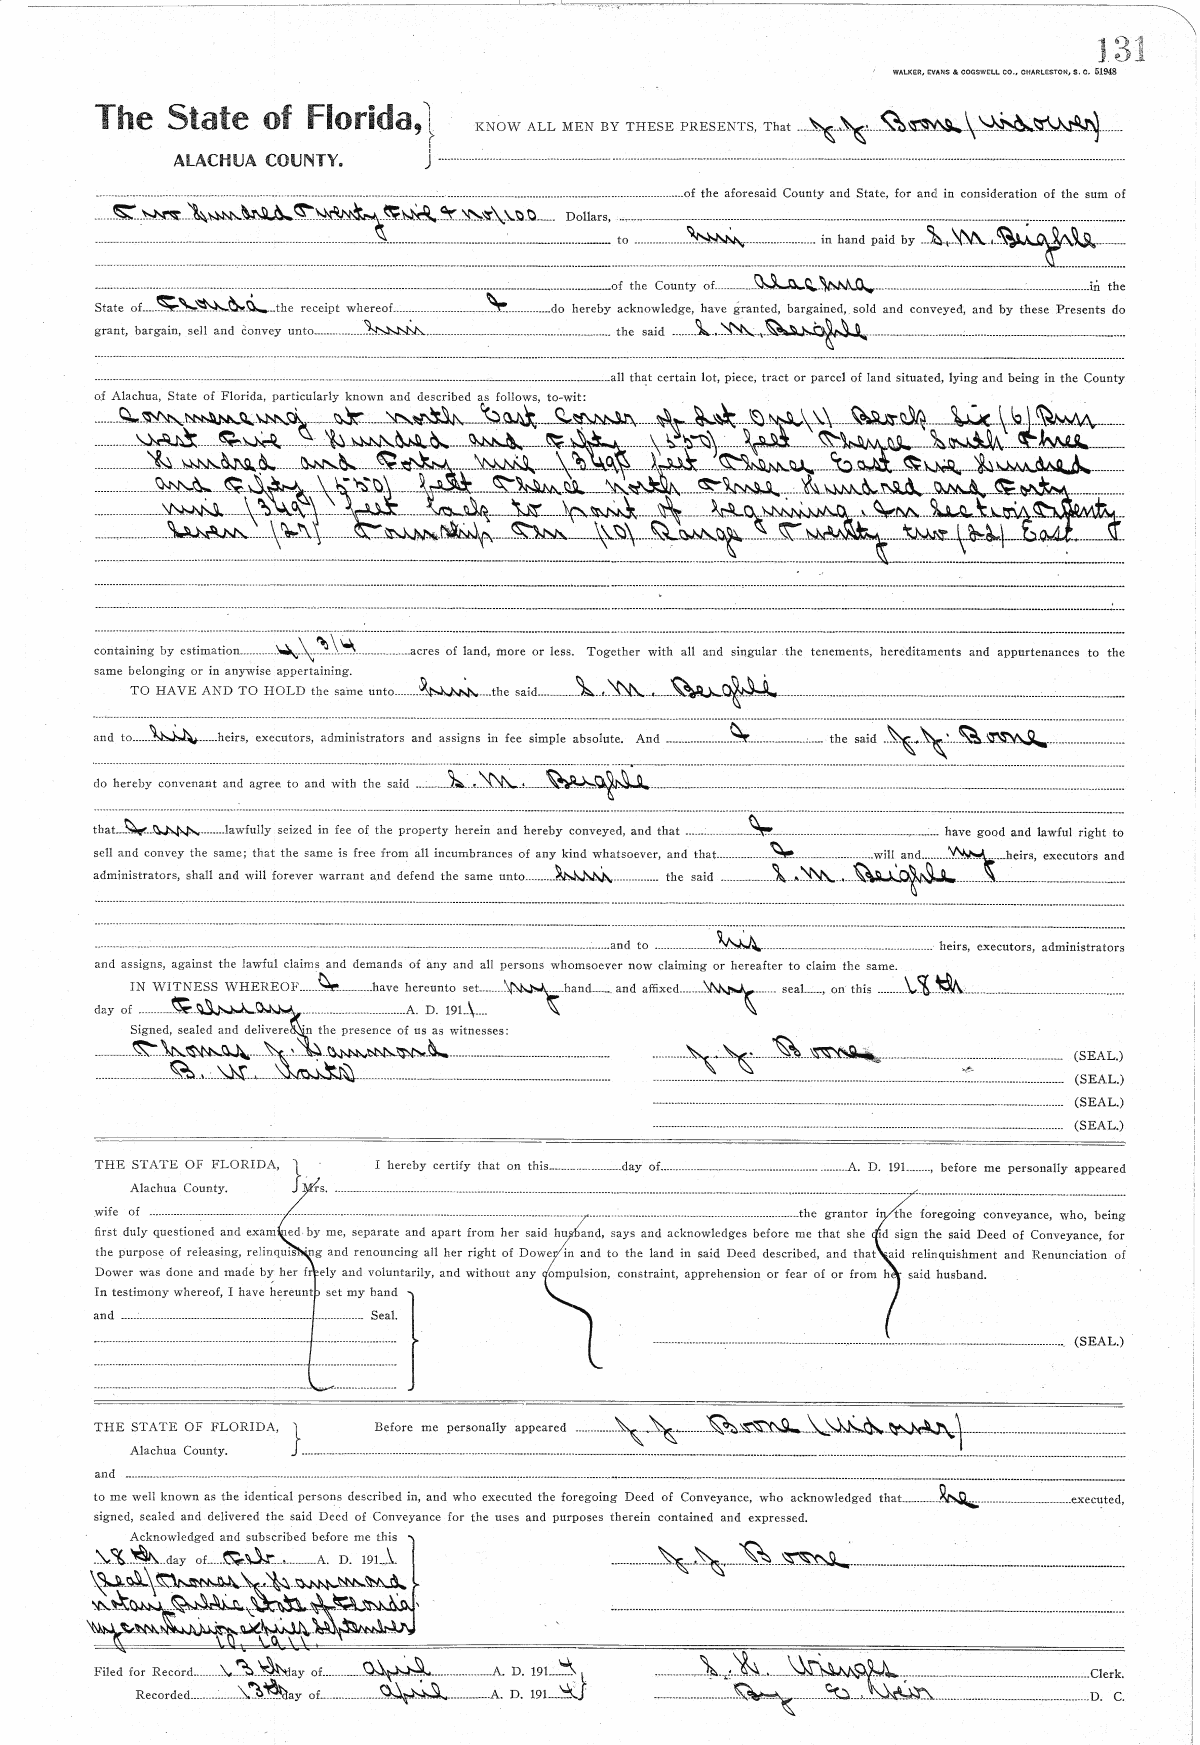 131
WALKER, EVANS & COGSWELL CO., CHARLESTON, S. C. 51948
The State of Florida,
ALACHUA COUNTY.
KNOW ALL MEN BY THESE PRESENTS, That J. J. Boone (Widower)
of the aforesaid County and State, for and in consideration of the sum of
Two Hundred Twenty Five & no/100 Dollars,
to him in hand paid by S. M. Beighle
of the County of Alachua in the
State of Florida the receipt whereof I do hereby acknowledge, have granted, bargained, sold and conveyed, and by these Presents do
grant, bargain, sell and convey unto him the said S. M. Beighle
all that certain lot, piece, tract or parcel of land situated, lying and being in the County
of Alachua, State of Florida, particularly known and described as follows, to-wit:
Commencing at north East Corner of Lot One (1) Block Six (6) Run
West Five Hundred and Fifty (550) feet Thence South Three
Hundred and Forty nine (349) feet Thence East Five Hundred
and Fifty (550) feet Thence north Three Hundred and Forty
nine (349) feet back to point of beginning. In Section Twenty
Seven (27) Township Ten (10) Range Twenty two (22) East.
containing by estimation 4 3/4 acres of land, more or less. Together with all and singular the tenements, hereditaments and appurtenances to the
same belonging or in anywise appertaining.
TO HAVE AND TO HOLD the same unto him the said S. M. Beighle
and to his heirs, executors, administrators and assigns in fee simple absolute. And I the said J. J. Boone
do hereby convenant and agree to and with the said S. M. Beighle
that I am lawfully seized in fee of the property herein and hereby conveyed, and that I have good and lawful right to
sell and convey the same; that the same is free from all incumbrances of any kind whatsoever, and that I will and my heirs, executors and
administrators, shall and will forever warrant and defend the same unto him the said S. M. Beighle
and to his heirs, executors, administrators
and assigns, against the lawful claims and demands of any and all persons whomsoever now claiming or hereafter to claim the same.
IN WITNESS WHEREOF I have hereunto set my hand and affixed my seal, on this 18th
day of February A. D. 1911.
Signed, sealed and delivered in the presence of us as witnesses:
Thomas J. Hammond J. J. Boone (SEAL.)
B. W. Waits (SEAL.)
(SEAL.)
(SEAL.)
THE STATE OF FLORIDA, I hereby certify that on this day of A. D. 191 , before me personally appeared
Alachua County. Mrs.
wife of the grantor in the foregoing conveyance, who, being
first duly questioned and examined by me, separate and apart from her said husband, says and acknowledges before me that she did sign the said Deed of Conveyance, for
the purpose of releasing, relinquishing and renouncing all her right of Dower in and to the land in said Deed described, and that said relinquishment and Renunciation of
Dower was done and made by her freely and voluntarily, and without any compulsion, constraint, apprehension or fear of or from her said husband.
In testimony whereof, I have hereunto set my hand
and Seal.
(SEAL.)
THE STATE OF FLORIDA, Before me personally appeared J. J. Boone (Widower)
Alachua County.
and
to me well known as the identical persons described in, and who executed the foregoing Deed of Conveyance, who acknowledged that he executed,
signed, sealed and delivered the said Deed of Conveyance for the uses and purposes therein contained and expressed.
Acknowledged and subscribed before me this
18th day of Feb. A. D. 1911 J. J. Boone
(Seal) Thomas J. Hammond
notary Public, State of Florida
my commission expires September
10, 1911.
Filed for Record 13th day of April A. D. 1914, S. H. Wienges Clerk.
Recorded 13th day of April A. D. 1914 By E. Weir D. C.